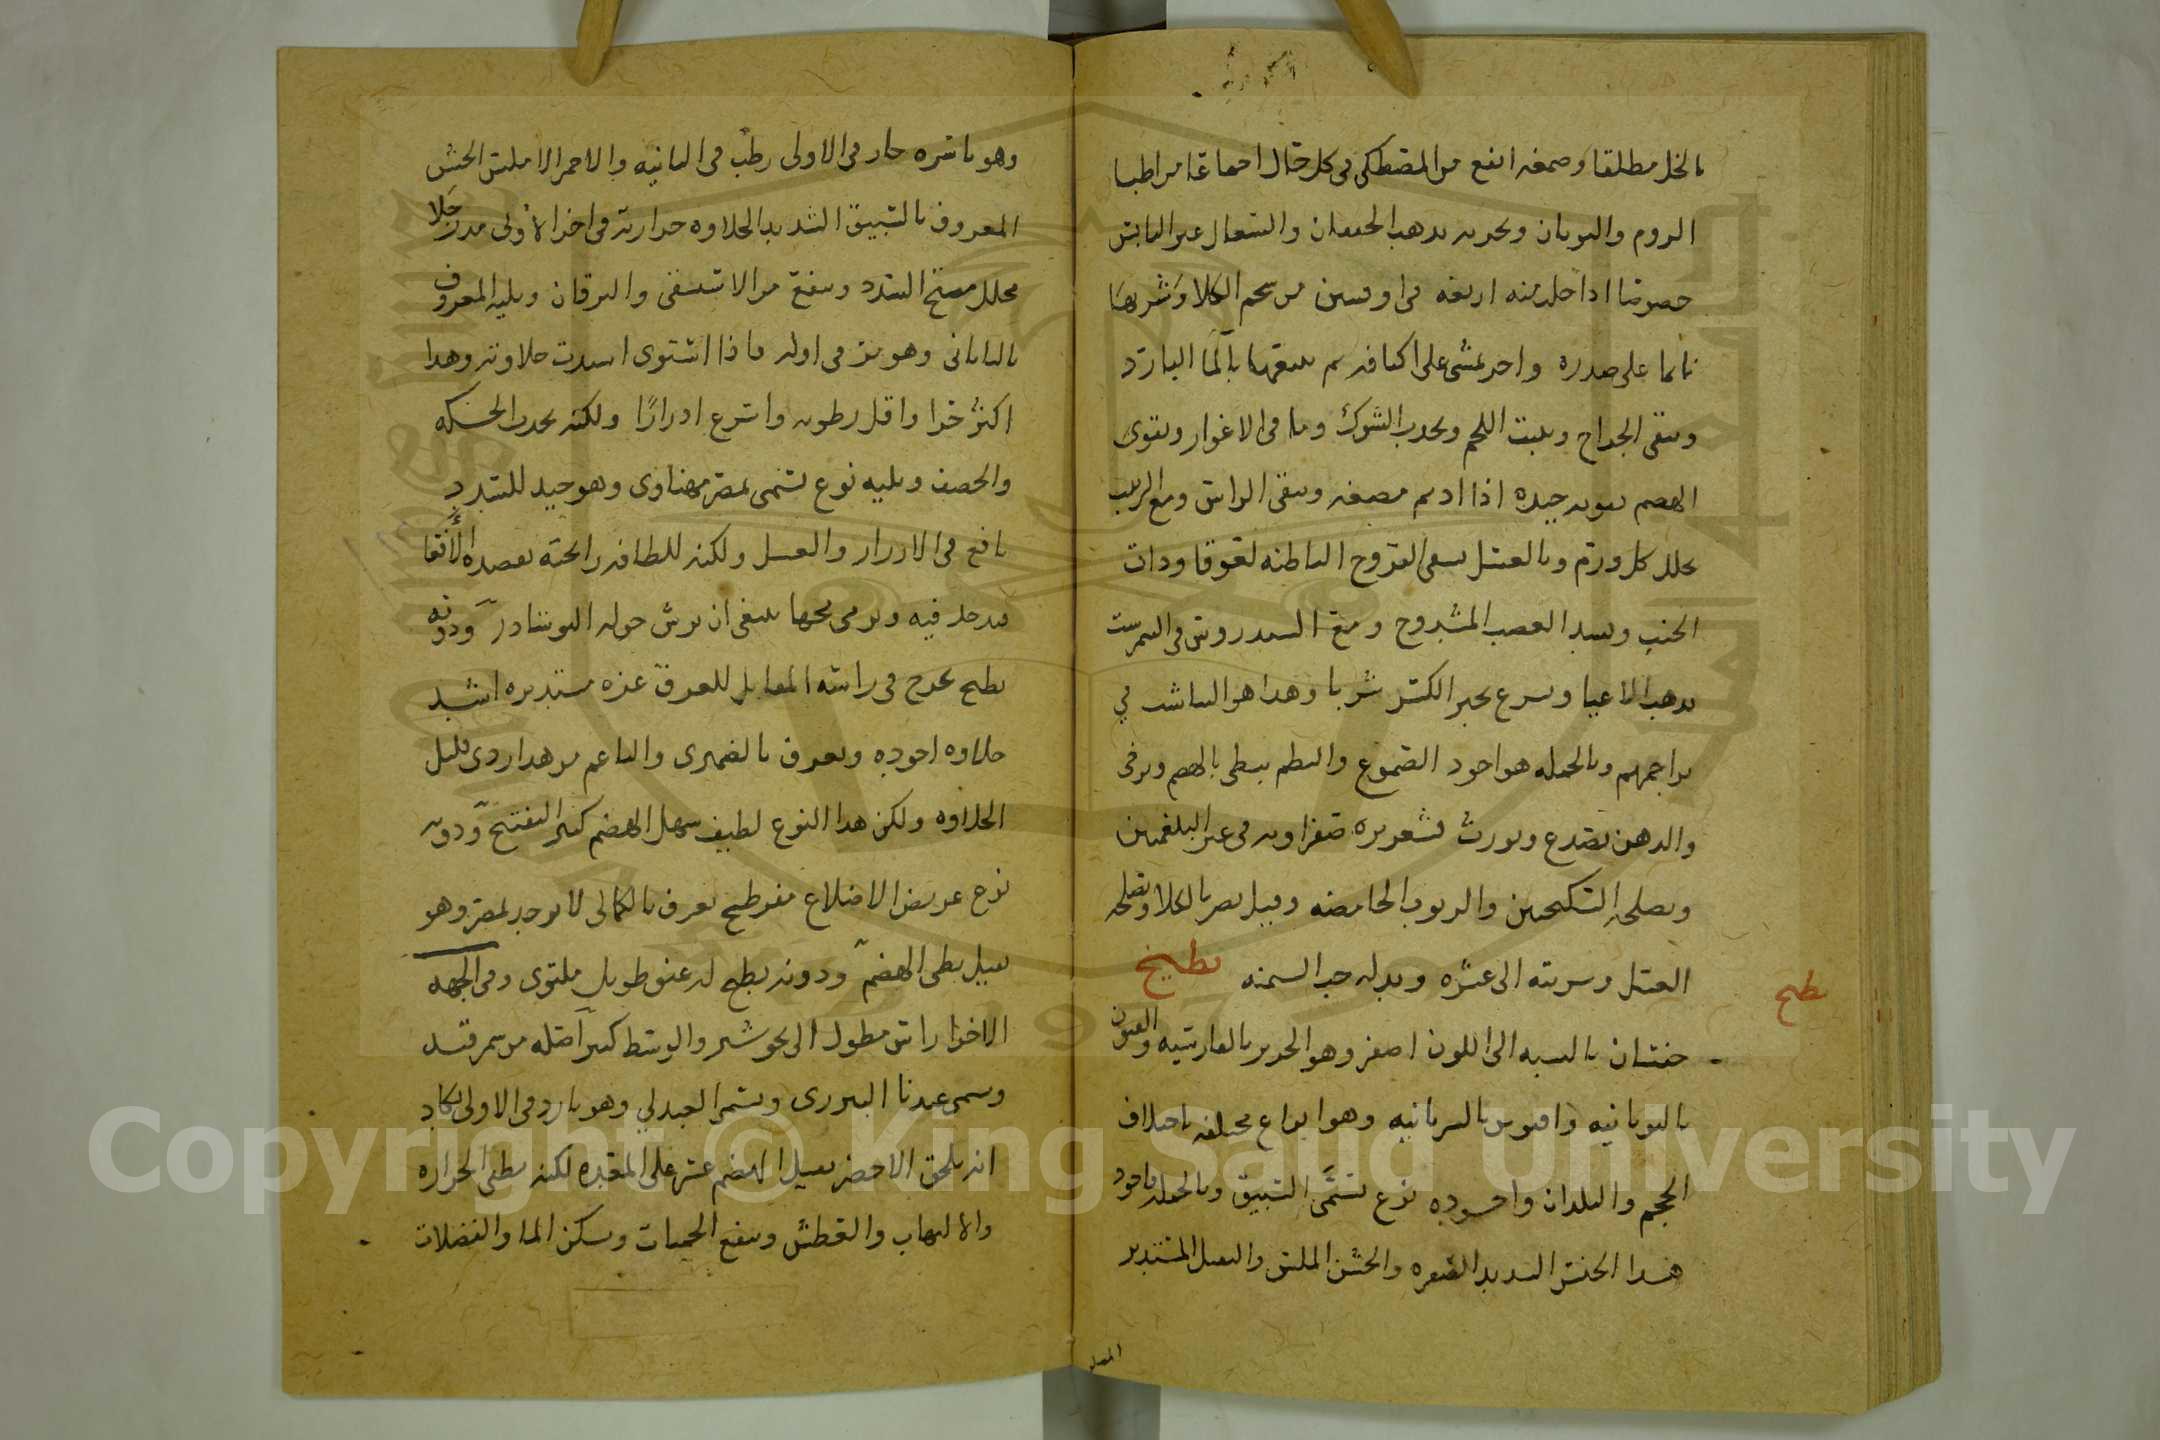 بالخل مطلقا وصمغه انفع من المصطكى في كل حال اجماعا من اطبا
الروم واليونان وبحرية يذهب الخفقان والسعال عن اليابس
خصوصا اذا حلد منه اربعه في اوقيتين من شحم الكلا وشربها
نايما على صدره واخر يمشى على اكتافه ثم يتبعها بالما البارد
وينقى الجراح وينبت اللحم ويجذب الشوك وما في الاغوار ويقوى
الهضم بقوه جيده اذا ادیم مضغه وينقى الراس ومع الزيت
يحلل كل ورم وبالعسل ينقى القروح الباطنه لعوقا وذات
الجنب ويشد العصب المشدوخ ومع السندروس في
يذهب الاعيا ويسرع بجبر الكسر شربا وهذا هو الساشت في
تراجمهم وبالجمله هو اجود الصموغ والبطم يبطى بالهضم ويرخى
والدهن يصدع ويورث قشعريره صفراويه في غير البلغميين
ويصلحه السكنجبين والربوب الحامضه وقيل يضر بالكلا ويصلحه
العسل وشربته الى عشره وبدله حب السمنه بطيخ
بطيخ
جنسان بالنسبه الى اللون اصفر وهو الخربز بالفارسيه والقيون
باليونانيه وافيوس بالسريانيه وهو انواع مختلفه باختلاف
الحجم والبلدان واجوده نوع يسمى السبيق وبالجمله فاجود
هذا الجنس الشديد الصفره والخشن الملمس والثقيل المستدير
المضلع
وهو باسره حار في الاولى رطب في الثانيه والاحمر الاملس الخشن
المعروف بالسبيق الشديد الحلاوه حرارته في اخر الاولى مدر جلا
محلل مفتح السدد وينفع من الاستسقى واليرقان ويليه المعروف
بالياباني وهو مز في اوله فاذا استوى اشتدت حلاوته وهذا
اكثر حرا واقل رطوبه واسرع ادرارا ولكنه يحدث الحكه
والحصف ويليه نوع يسمى بمصر مهناوى وهو جيد للسدد
نافع في الادرار والغسل ولكنه للطافه رايحته تقصده الافعا
فتدخل فيه وترمى سمها ينبغى ان يرش حوله النوشادر ودونه
بطيخ يخرج في راسه المقابل للعرق غره مستديره اشد
حلاوه اجوده ويعرف بالضميرى والناعم من هذا ردى قليل
الحلاوه ولكن هذا النوع لطيف سهل الهضم كثير التفتيح ودونه
نوع عريض الاضلاع مفرطح يعرف بالكمالى لا يوجد بمصر وهو
ثقيل بطى الهضم ودونه بطيخ له عنق طويل ملتوى وفي الجهه
الاخرا راس مطول الى نحو شبر والوسط كبير اصله من سمرقند
وسمى عندنا البيرى ويسمى العبدلي وهو بارد في الاولى يكاد
انه يلحق الاخضر ثقيل الهضم عسر على المعده لكنه يطفى الحراره
والالتهاب والعطش وينفع الحميات ويسكن الما والفضلات
Copyright © King Saud University